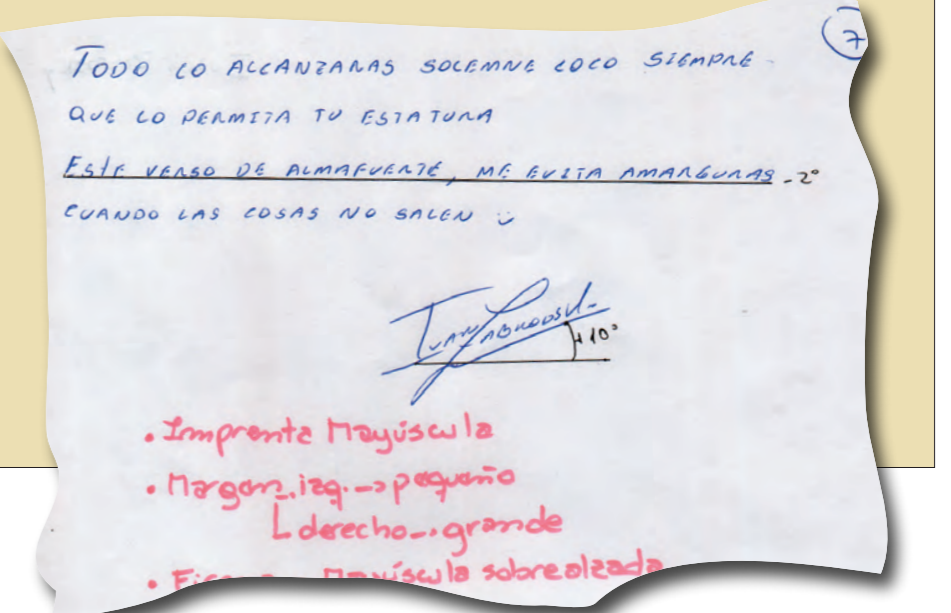 7
TODO LO ALCANZARAS SOLEMNE LOCO SIEMPRE
QUE LO PERMITA TU ESTATURA
ESTE VERSO DE ALMAFUERTE, ME EVITA AMARGURAS -2°
CUANDO LAS COSAS NO SALEN
IVAN
+10°
• Imprenta Mayúscula
• Margen. izq. -> pequeño
derecho -. grande
• Mayúscula sobrealzada